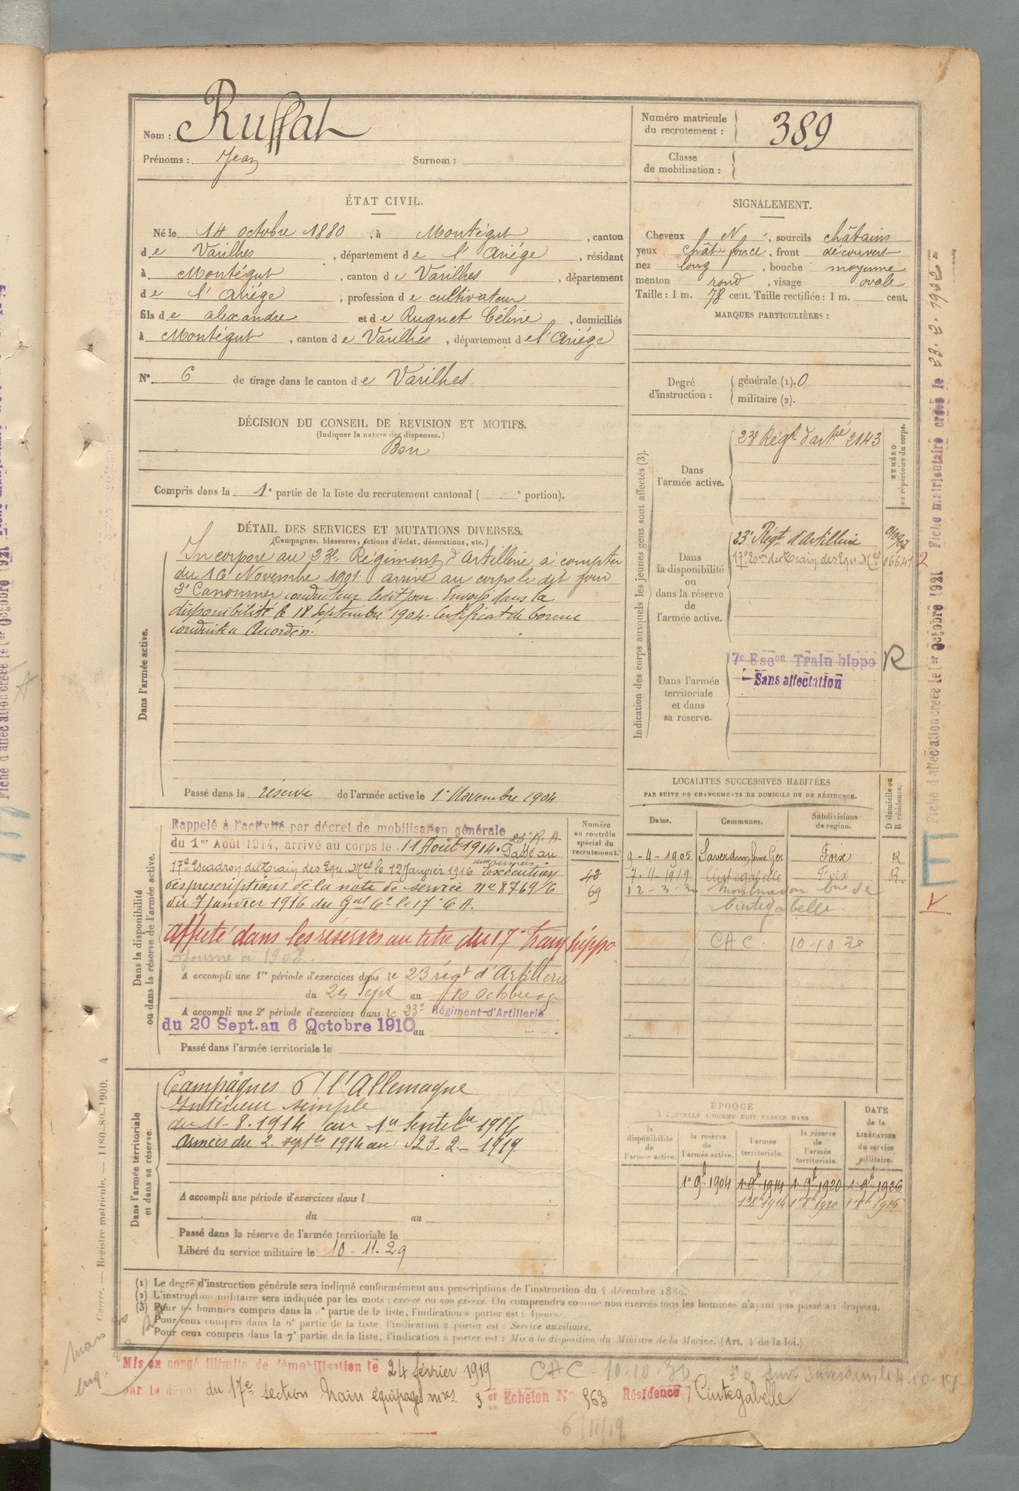 Nom : Ruffat
Prénoms : Jean Surnom :
Numéro matricule du recrutement : 389
Classe de mobilisation :
ÉTAT CIVIL.
Né le 14 octobre 1880, à Montégut, canton
de Varilhes, département de l'Ariège, résidant
à Montégut, canton de Varilhes, département
de l'Ariège, profession de cultivateur
fils de alexandre et de Ruquet Céline, domiciliés
à Montégut, canton de Varilhes, département de l'Ariège
N° 6 de tirage dans le canton de Varilhes
SIGNALEMENT.
Cheveux, sourcils châtains
yeux chât foncé, front découvert
nez long, bouche moyenne
menton rond, visage ovale
Taille : 1 m. 78 cent. Taille rectifiée : 1 m. cent.
MARQUES PARTICULIÈRES :
Degré d'instruction : générale (1). 0
militaire (2).
DÉCISION DU CONSEIL DE REVISION ET MOTIFS.
(Indiquer la nature des dispenses.)
Bon
Compris dans la 1e partie de la liste du recrutement cantonal ( e portion).
DÉTAIL DES SERVICES ET MUTATIONS DIVERSES.
(Campagnes, blessures, actions d'éclat, décorations, etc.)
Dans l'armée active.
Incorporé au 23e Régiment d'Artillerie à compter
du 16 Novembre 1901 arrivé au corps le dit jour
2e Canonnier conducteur le dit jour. Envoyé dans la
disponibilité le 18 Septembre 1904. Certificat de bonne
conduite Accordé.
Passé dans la réserve de l'armée active le 1er Novembre 1904
Indication des corps auxquels les jeunes gens sont affectés (3).
NUMÉRO au répertoire du corps.
Dans l'armée active.
23e Régt d'artie 2143
Dans la disponibilité ou dans la réserve de l'armée active.
23e Régt d'Artillerie
17e Eson du Train des Equ. Mres
Dans l'armée territoriale et dans sa réserve.
17e Escon Train hippo R
Sans affectation
LOCALITÉS SUCCESSIVES HABITÉES
PAR SUITE DE CHANGEMENTS DE DOMICILE OU DE RÉSIDENCE.
Dates. Communes. Subdivisions de région. D domicile ou R résidence.
9-4-1905 Saverdun Foix R
7-11-1919 Cintegabelle Foix R
Cintegabelle
CAC. 10-10-30
Dans la disponibilité ou dans la réserve de l'armée active.
Numéro au contrôle spécial du recrutement.
42
69
Rappelé à l'activité par décret de mobilisation générale
du 1er Août 1914, arrivé au corps le 11 Août 1914. 23e R.A. Passé au
17e Escadron du Train des Equ. Mres le 12 Janvier 1916 Exécution
des prescriptions de la note de service n° 8769/6
du 7 Janvier 1916 du Gal Ct le 17e C.A.
affecté dans les réserves au titre du 17e train hippo
A accompli une 1re période d'exercices dans le 23 régt d'Artillerie
du 24 Sept au 10 octobre
A accompli une 2e période d'exercices dans le 23e Régiment d'Artillerie
du 20 Sept. au 6 Octobre 1910
Passé dans l'armée territoriale le
Dans l'armée territoriale et dans sa réserve.
Campagnes c/ l'Allemagne
Intérieur simple
du 11-8.1914 au 1er Septembre 1914
Armées du 2 septbre 1914 au 23-2-1919
A accompli une période d'exercices dans l
du au
Passé dans la réserve de l'armée territoriale le
Libéré du service militaire le 10-11-29
ÉPOQUE
À LAQUELLE L'HOMME DOIT PASSER DANS
la disponibilité de l'armée active. la réserve de l'armée active. l'armée territoriale. la réserve de l'armée territoriale.
DATE de la LIBÉRATION du service militaire.
1er 9bre 1904 1er 9bre 1914 1er 9bre 1920 1er 9bre 1926
(1) Le degré d'instruction générale sera indiqué conformément aux prescriptions de l'instruction du 4 décembre 1889.
(2) L'instruction militaire sera indiquée par les mots : exercé ou non exercé. On comprendra comme non exercés tous les hommes n'ayant pas passé au drapeau.
(3) Pour les hommes compris dans la partie de la liste, l'indication à porter est :
Pour ceux compris dans la 6e partie de la liste, l'indication à porter est : Service auxiliaire.
Pour ceux compris dans la 7e partie de la liste, l'indication à porter est : Mis à la disposition du Ministre de la Marine. (Art. 4 de la loi.)
Mis en congé illimité de démobilisation le 24 février 1919 CAC 10.10.30
par le dépôt du 17e section train équipages mres 3e Echelon N° 563 Résidence Cintegabelle
6/11/19
Fiche d'affectation créée le 1er Octobre 1921
Fiche matriculaire créée le
Registre matricule.